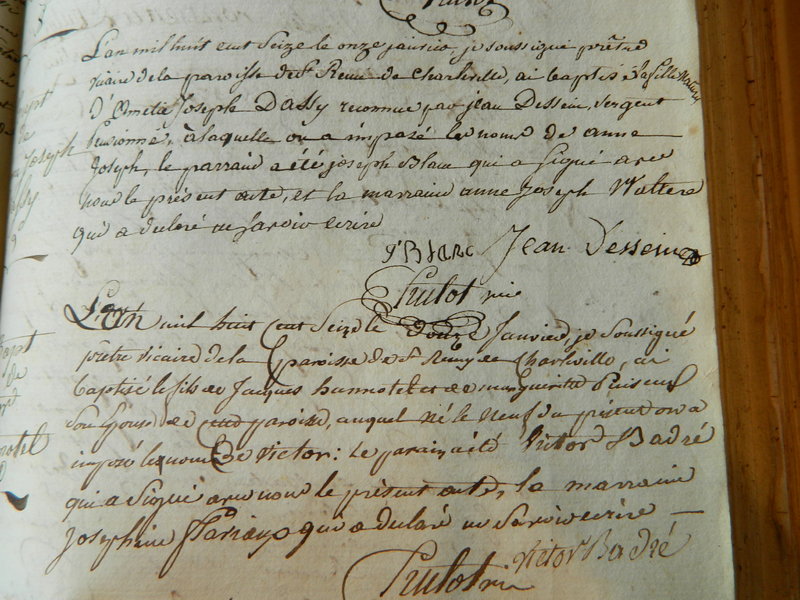 L'an mil huit cent Seize le onze janvier, je soussigné prêtre
vicaire de la paroisse de St Remi de Charleville, ai baptisé la fille Naturel
d'Omelie Joseph Dassy reconnue par jean Dessein, Sergent
pensionné, à laquelle on a imposé les noms de anne
Joseph, le parrain a été joseph Blanc qui a Signé avec
nous le présent acte, et la marraine anne Joseph Waltere
qui a declaré ne Savoir ecrire
J Blanc Jean Dessein
Chulot vic
L'An mil huit cent Seize le douze Janvier, je Soussigné
prêtre vicaire de la paroisse de St Remy de Charleville, ai
baptisé le fils de Jacques hannotel et de marguerite
Son Epouse de cette paroisse, auquel né le neuf du présent on a
imposé le nom De Victor: Le parain a été Victor Badré
qui a Signé avec nous le présent acte, la marraine
Josephine qui a declaré ne Savoir ecrire
Chulot vic Victor Badré